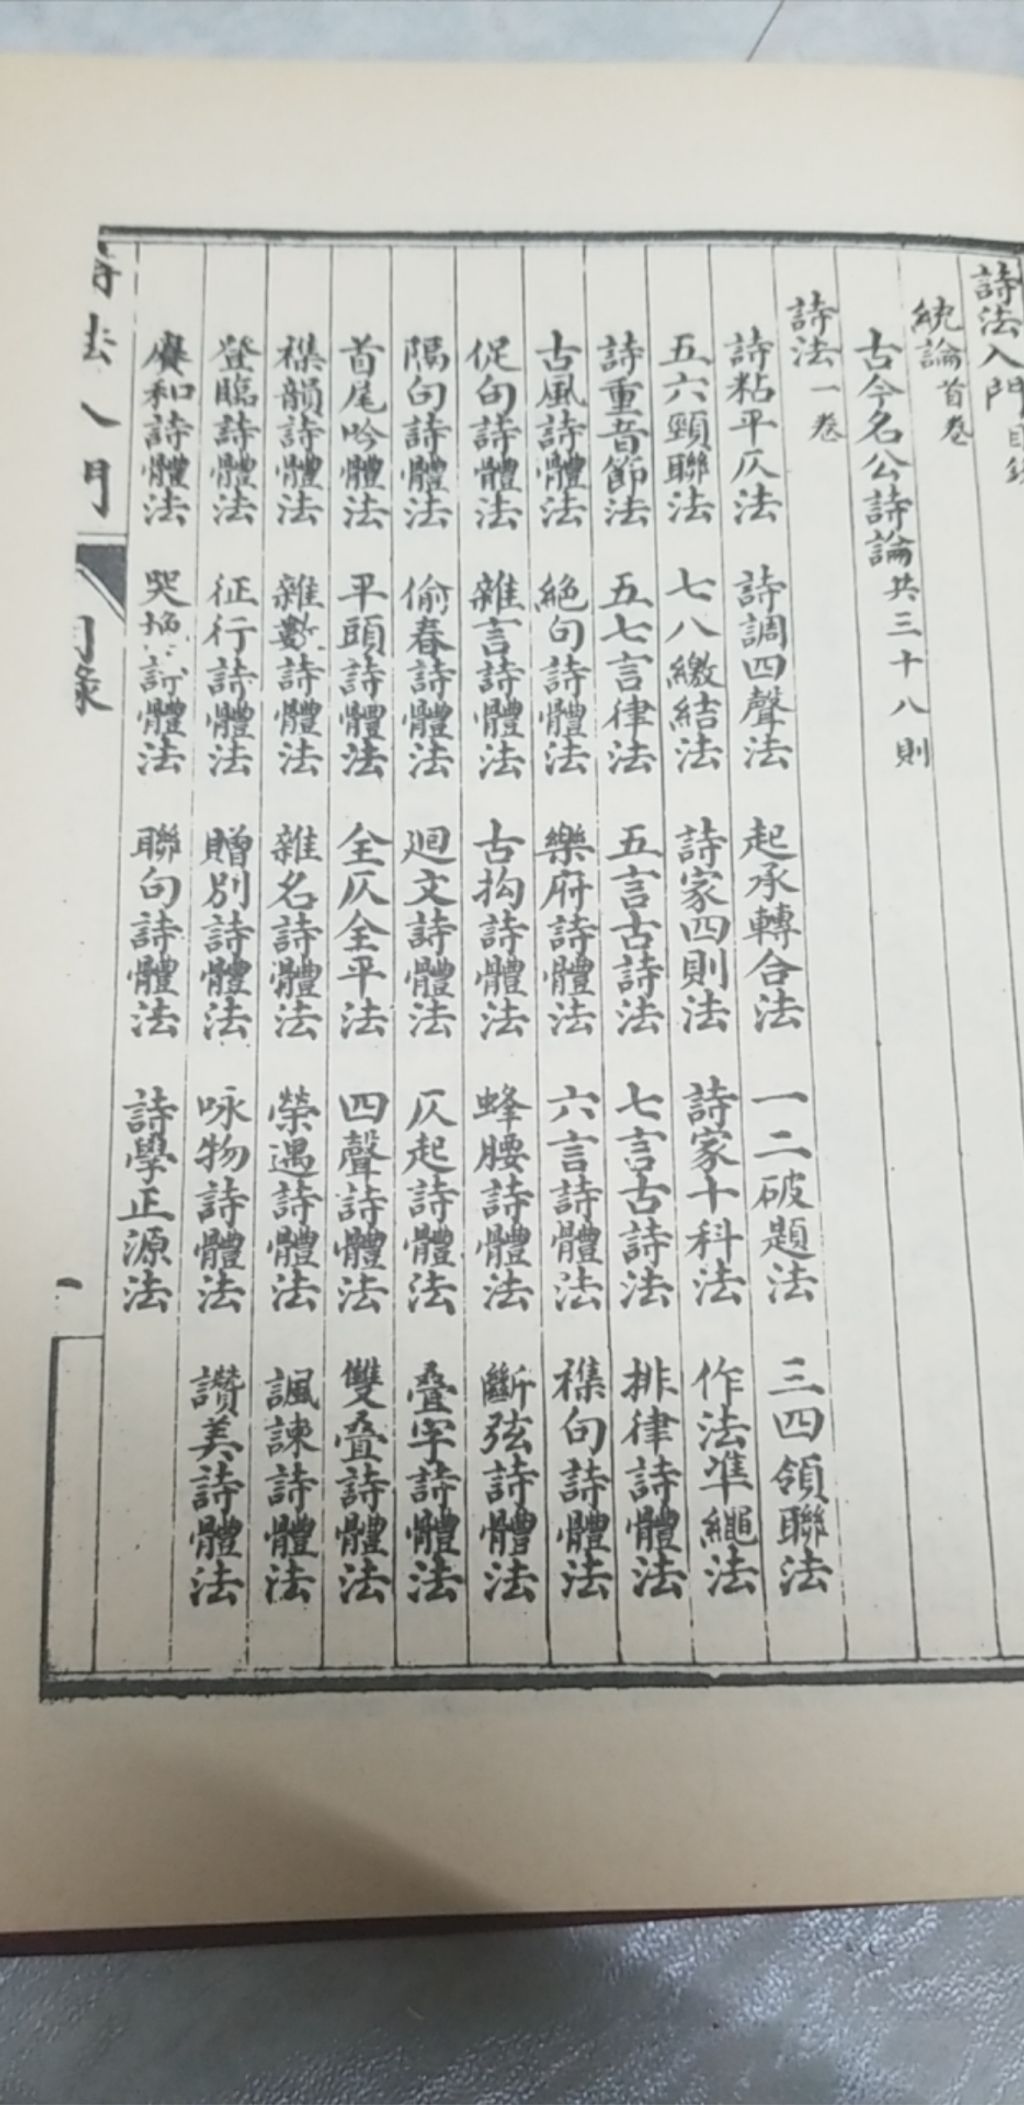 詩法入門目錄
統論首卷
古今名公詩論共三十八則
詩法一卷
詩粘平仄法 詩調四聲法 起承轉合法 一二破題法 三四領聯法
五六頸聯法 七八繳結法 詩家四則法 詩家十科法 作法準繩法
詩重音節法 五七言律法 五言古詩法 七言古詩法 排律詩體法
古風詩體法 絕句詩體法 樂府詩體法 六言詩體法 襍句詩體法
促句詩體法 雜言詩體法 古拘詩體法 蜂腰詩體法 斷弦詩體法
隔句詩體法 偷春詩體法 廻文詩體法 仄起詩體法 叠字詩體法
首尾吟體法 平頭詩體法 全仄全平法 四聲詩體法 雙叠詩體法
襍韻詩體法 雜數詩體法 雜名詩體法 榮遇詩體法 諷諫詩體法
登臨詩體法 征行詩體法 贈別詩體法 咏物詩體法 讚美詩體法
賡和詩體法 哭詩體法 聯句詩體法 詩學正源法
詩法入門
目錄
一